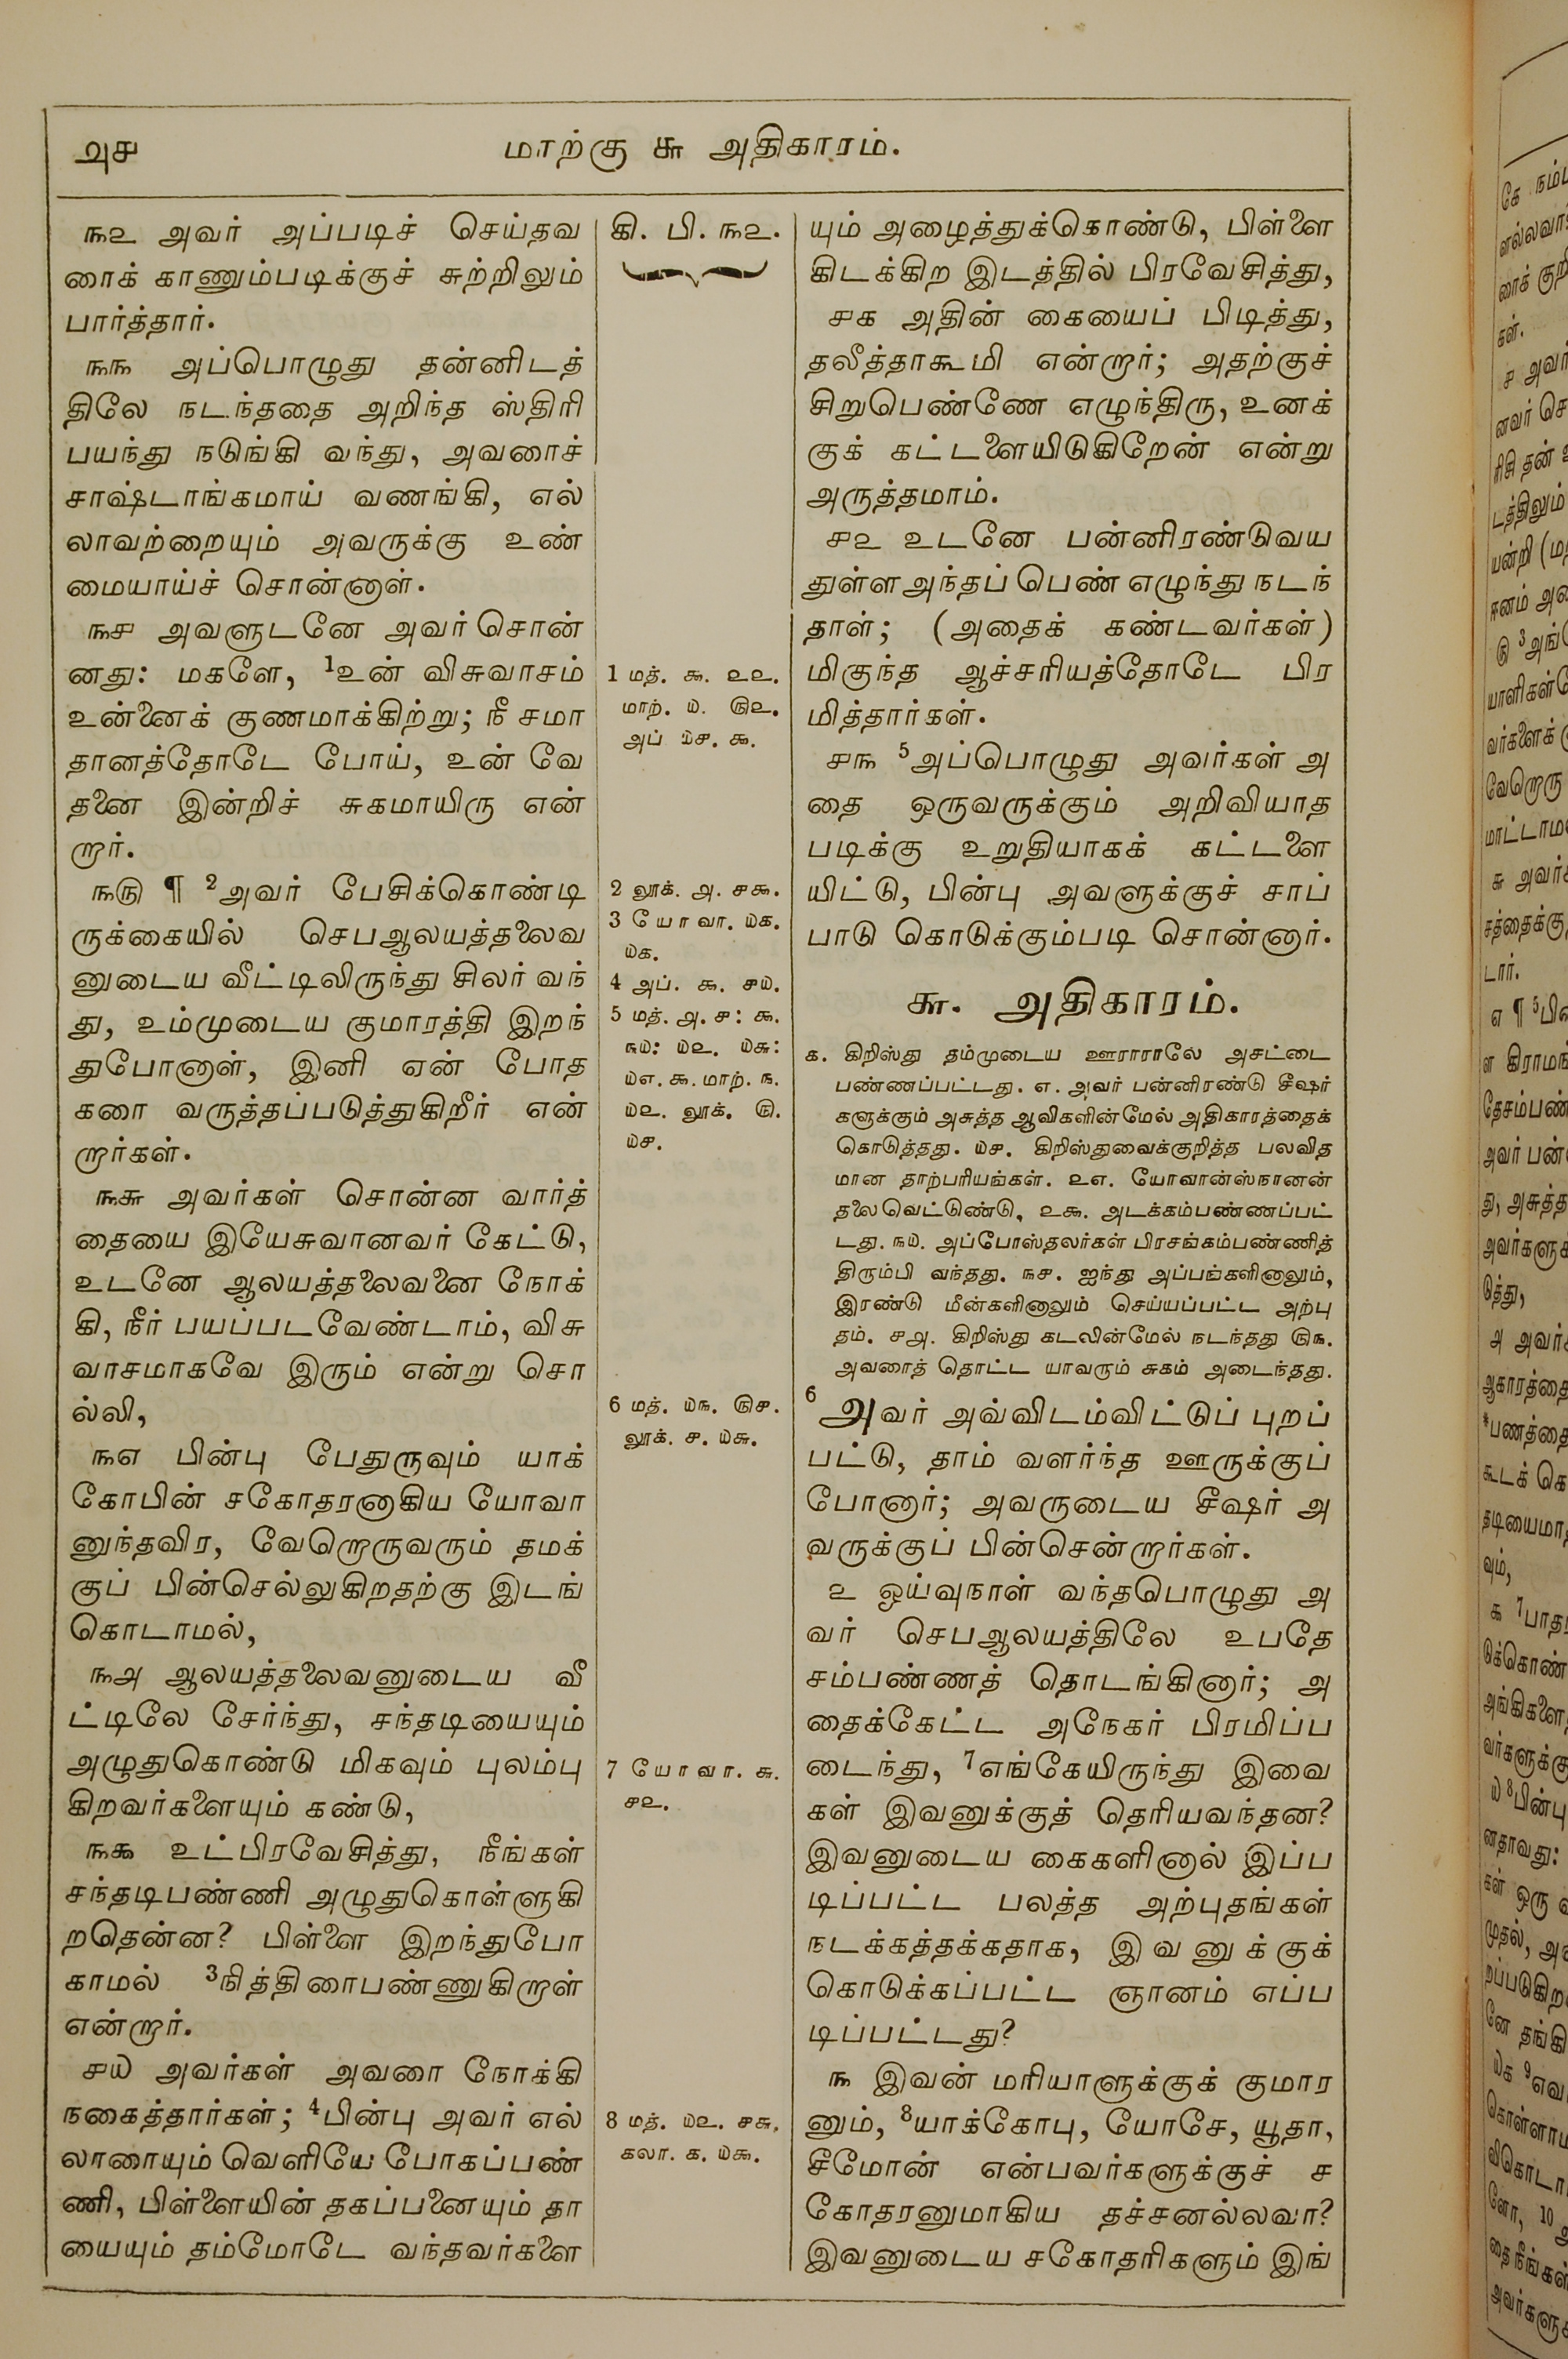 ௮௪
மாற்கு ௬ அதிகாரம்.
௩௨ அவர் அப்படிச் செய்தவ
ரைக் காணும்படிக்குச் சுற்றிலும்
பார்த்தார்.
௩௩ அப்பொழுது தன்னிடத்
திலே நடந்ததை அறிந்த ஸ்திரி
பயந்து நடுங்கி வந்து, அவரைச்
சாஷ்டாங்கமாய் வணங்கி, எல்
லாவற்றையும் அவருக்கு உண்
மையாய்ச் சொன்னாள்.
௩௪ அவளுடனே அவர் சொன்
னது: மகளே, 1உன் விசுவாசம்
உன்னைக் குணமாக்கிற்று; நீ சமா
தானத்தோடே போய், உன் வே
தனை இன்றிச் சுகமாயிரு என்
றார்.
௩௫ ¶ 2அவர் பேசிக்கொண்டி
ருக்கையில் செபஆலயத்தலைவ
னுடைய வீட்டிலிருந்து சிலர் வந்
து, உம்முடைய குமாரத்தி இறந்
துபோனாள், இனி ஏன் போத
கரை வருத்தப்படுத்துகிறீர் என்
றார்கள்.
௩௬ அவர்கள் சொன்ன வார்த்
தையை இயேசுவானவர் கேட்டு,
உடனே ஆலயத்தலைவனை நோக்
கி, நீர் பயப்படவேண்டாம், விசு
வாசமாகவே இரும் என்று சொ
ல்லி,
௩௭ பின்பு பேதுருவும் யாக்
கோபின் சகோதரனாகிய யோவா
னுந்தவிர, வேறொருவரும் தமக்
குப் பின்செல்லுகிறதற்கு இடங்
கொடாமல்,
௩௮ ஆலயத்தலைவனுடைய வீ
ட்டிலே சேர்ந்து, சந்தடியையும்
அழுதுகொண்டு மிகவும் புலம்பு
கிறவர்களையும் கண்டு,
௩௯ உட்பிரவேசித்து, நீங்கள்
சந்தடிபண்ணி அழுதுகொள்ளுகி
றதென்ன? பிள்ளை இறந்துபோ
காமல் 3நித்திரைபண்ணுகிறாள்
என்றார்.
௪௰ அவர்கள் அவரை நோக்கி
நகைத்தார்கள்; 4பின்பு அவர் எல்
லாரையும் வெளியே போகப்பண்
ணி, பிள்ளையின் தகப்பனையும் தா
யையும் தம்மோடே வந்தவர்களை
கி. பி. ௩௨.
1 மத். ௯. ௨௨.
மாற். ௰. ௫௨.
அப் ௰௪. ௯.
2 லூக். ௮. ௪௯.
3 யோவா. ௰௧.
௰௧.
4 அப். ௯. ௪௰.
5 மத். ௮. ௪: ௯.
௩௰: ௰௨. ௰௬:
௰௭. ௯. மாற். ௩.
௰௨. லூக். ௫.
௰௪.
6 மத். ௰௩. ௫௪.
லூக். ௪. ௰௬.
7 யோவா. ௬.
௪௨.
8 மத். ௰௨. ௪௬.
கலா. ௧. ௰௯.
யும் அழைத்துக்கொண்டு, பிள்ளை
கிடக்கிற இடத்தில் பிரவேசித்து,
௪௧ அதின் கையைப் பிடித்து,
தலீத்தாகூமி என்றார்; அதற்குச்
சிறுபெண்ணே எழுந்திரு, உனக்
குக் கட்டளையிடுகிறேன் என்று
அருத்தமாம்.
௪௨ உடனே பன்னிரண்டுவய
துள்ள அந்தப் பெண் எழுந்து நடந்
தாள்; (அதைக் கண்டவர்கள்)
மிகுந்த ஆச்சரியத்தோடே பிர
மித்தார்கள்.
௪௩ 5அப்பொழுது அவர்கள் அ
தை ஒருவருக்கும் அறிவியாத
படிக்கு உறுதியாகக் கட்டளை
யிட்டு, பின்பு அவளுக்குச் சாப்
பாடு கொடுக்கும்படி சொன்னார்.
௬. அதிகாரம்.
௧. கிறிஸ்து தம்முடைய ஊராராலே அசட்டை
பண்ணப்பட்டது. ௭. அவர் பன்னிரண்டு சீஷர்
களுக்கும் அசுத்த ஆவிகளின்மேல் அதிகாரத்தைக்
கொடுத்தது. ௰௪. கிறிஸ்துவைக்குறித்த பலவித
மான தாற்பரியங்கள். ௨௭. யோவான்ஸ்நானன்
தலைவெட்டுண்டு, ௨௯. அடக்கம்பண்ணப்பட்
டது. ௩௰. அப்போஸ்தலர்கள் பிரசங்கம்பண்ணித்
திரும்பி வந்தது. ௩௪. ஐந்து அப்பங்களினாலும்,
இரண்டு மீன்களினாலும் செய்யப்பட்ட அற்பு
தம். ௪௮. கிறிஸ்து கடலின்மேல் நடந்தது ௫௩.
அவரைத் தொட்ட யாவரும் சுகம் அடைந்தது.
6 அவர் அவ்விடம்விட்டுப் புறப்
பட்டு, தாம் வளர்ந்த ஊருக்குப்
போனார்; அவருடைய சீஷர் அ
வருக்குப் பின்சென்றார்கள்.
௨ ஓய்வுநாள் வந்தபொழுது அ
வர் செபஆலயத்திலே உபதே
சம்பண்ணத் தொடங்கினார்; அ
தைக்கேட்ட அநேகர் பிரமிப்ப
டைந்து, 7எங்கேயிருந்து இவை
கள் இவனுக்குத் தெரியவந்தன?
இவனுடைய கைகளினால் இப்ப
டிப்பட்ட பலத்த அற்புதங்கள்
நடக்கத்தக்கதாக, இவனுக்குக்
கொடுக்கப்பட்ட ஞானம் எப்ப
டிப்பட்டது?
௩ இவன் மரியாளுக்குக் குமார
னும், 8யாக்கோபு, யோசே, யூதா,
சீமோன் என்பவர்களுக்குச் ச
கோதரனுமாகிய தச்சனல்லவா?
இவனுடைய சகோதரிகளும் இங்